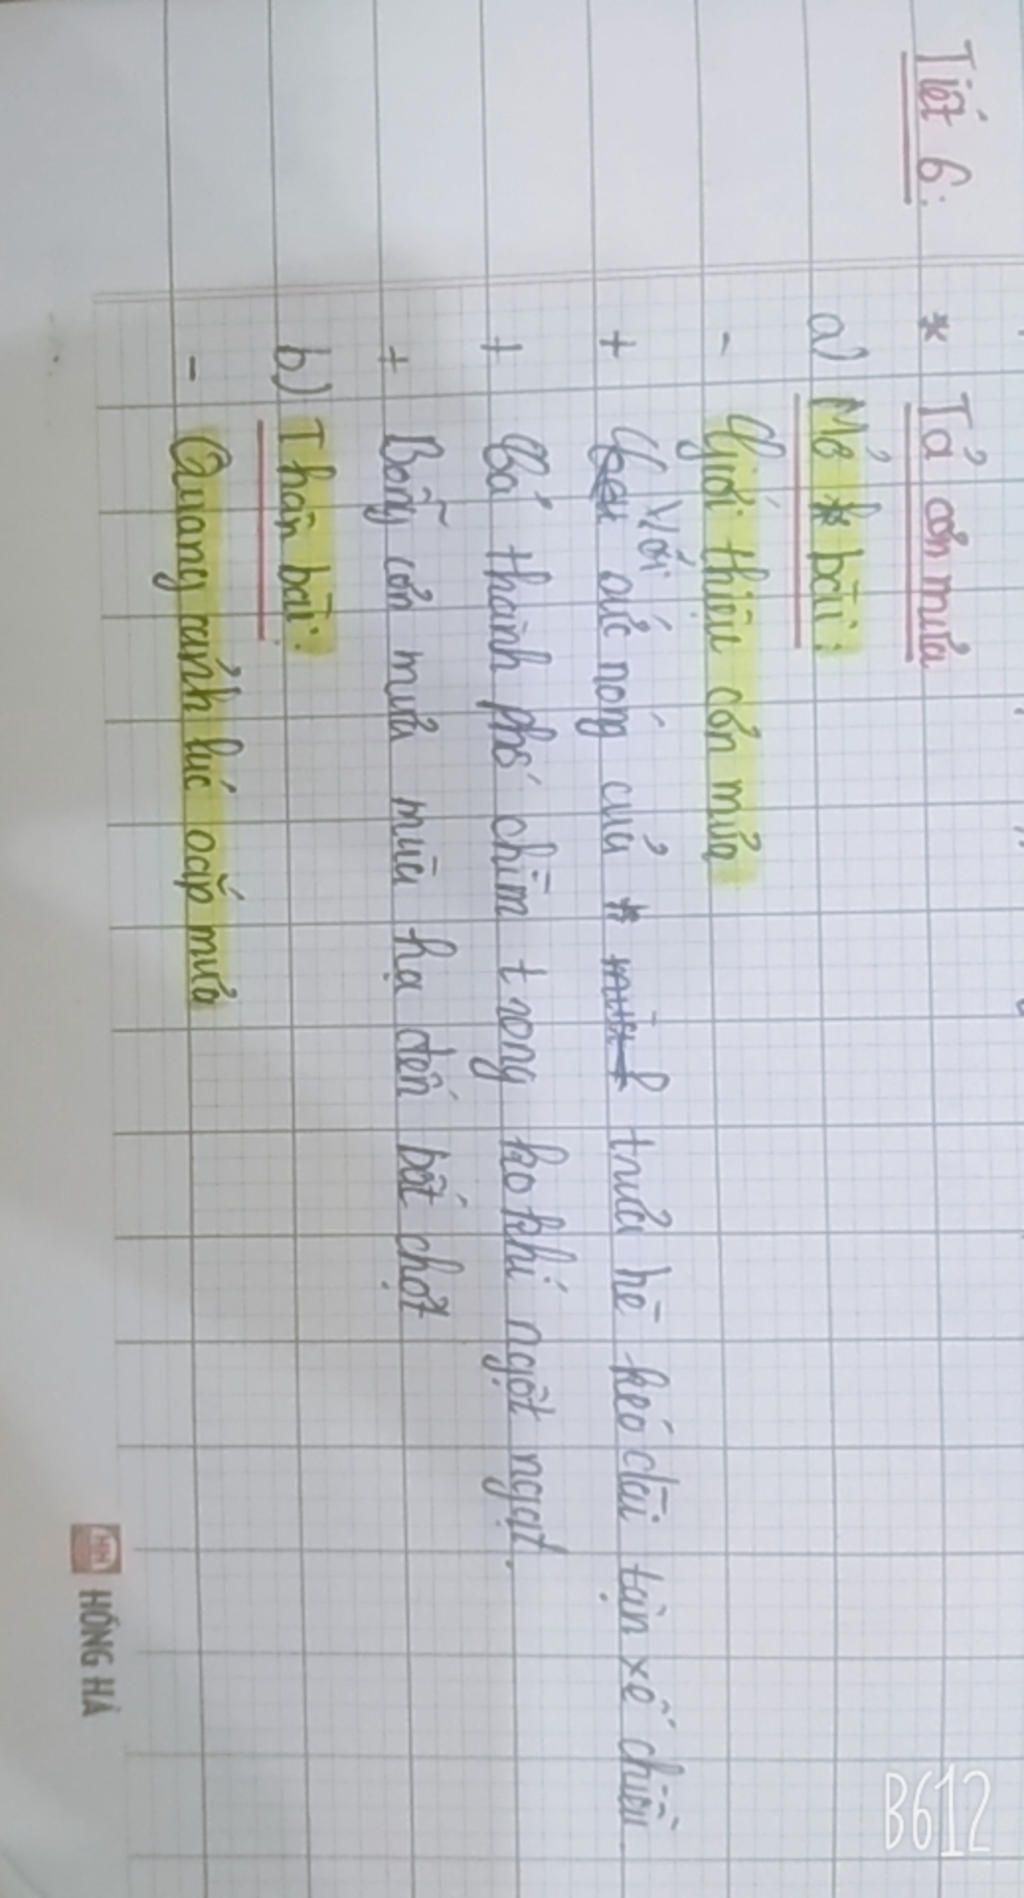 Tiết 6:
* Tả cơn mưa
a) Mở bài:
- Giới thiệu cơn mưa
+ Với ức nóng của trưa hè kéo dài tận xế chiều.
+ Cả thành phố chìm trong ko khí ngột ngạt.
+ Bỗng cơn mưa mùa hạ đến bất chợt
b) Thân bài:
- Quang cảnh lúc sắp mưa
HỒNG HÀ
B612